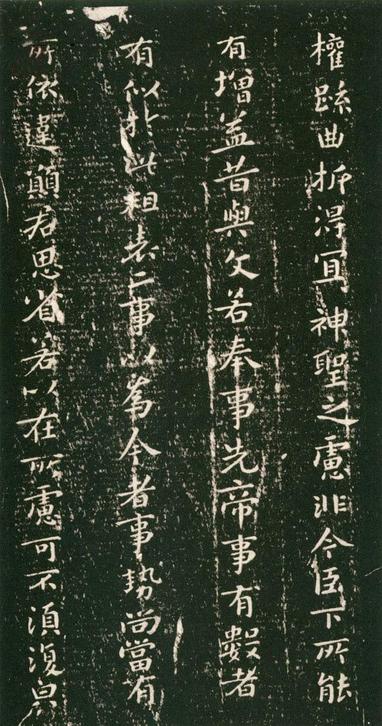 權疏曲折得宜神聖之慮非今臣下所能
有增益昔與文若奉事先帝事有數者
有似於此粗表二事以為今者事勢尚當有
所依違願君思省若以在所慮可不須復與